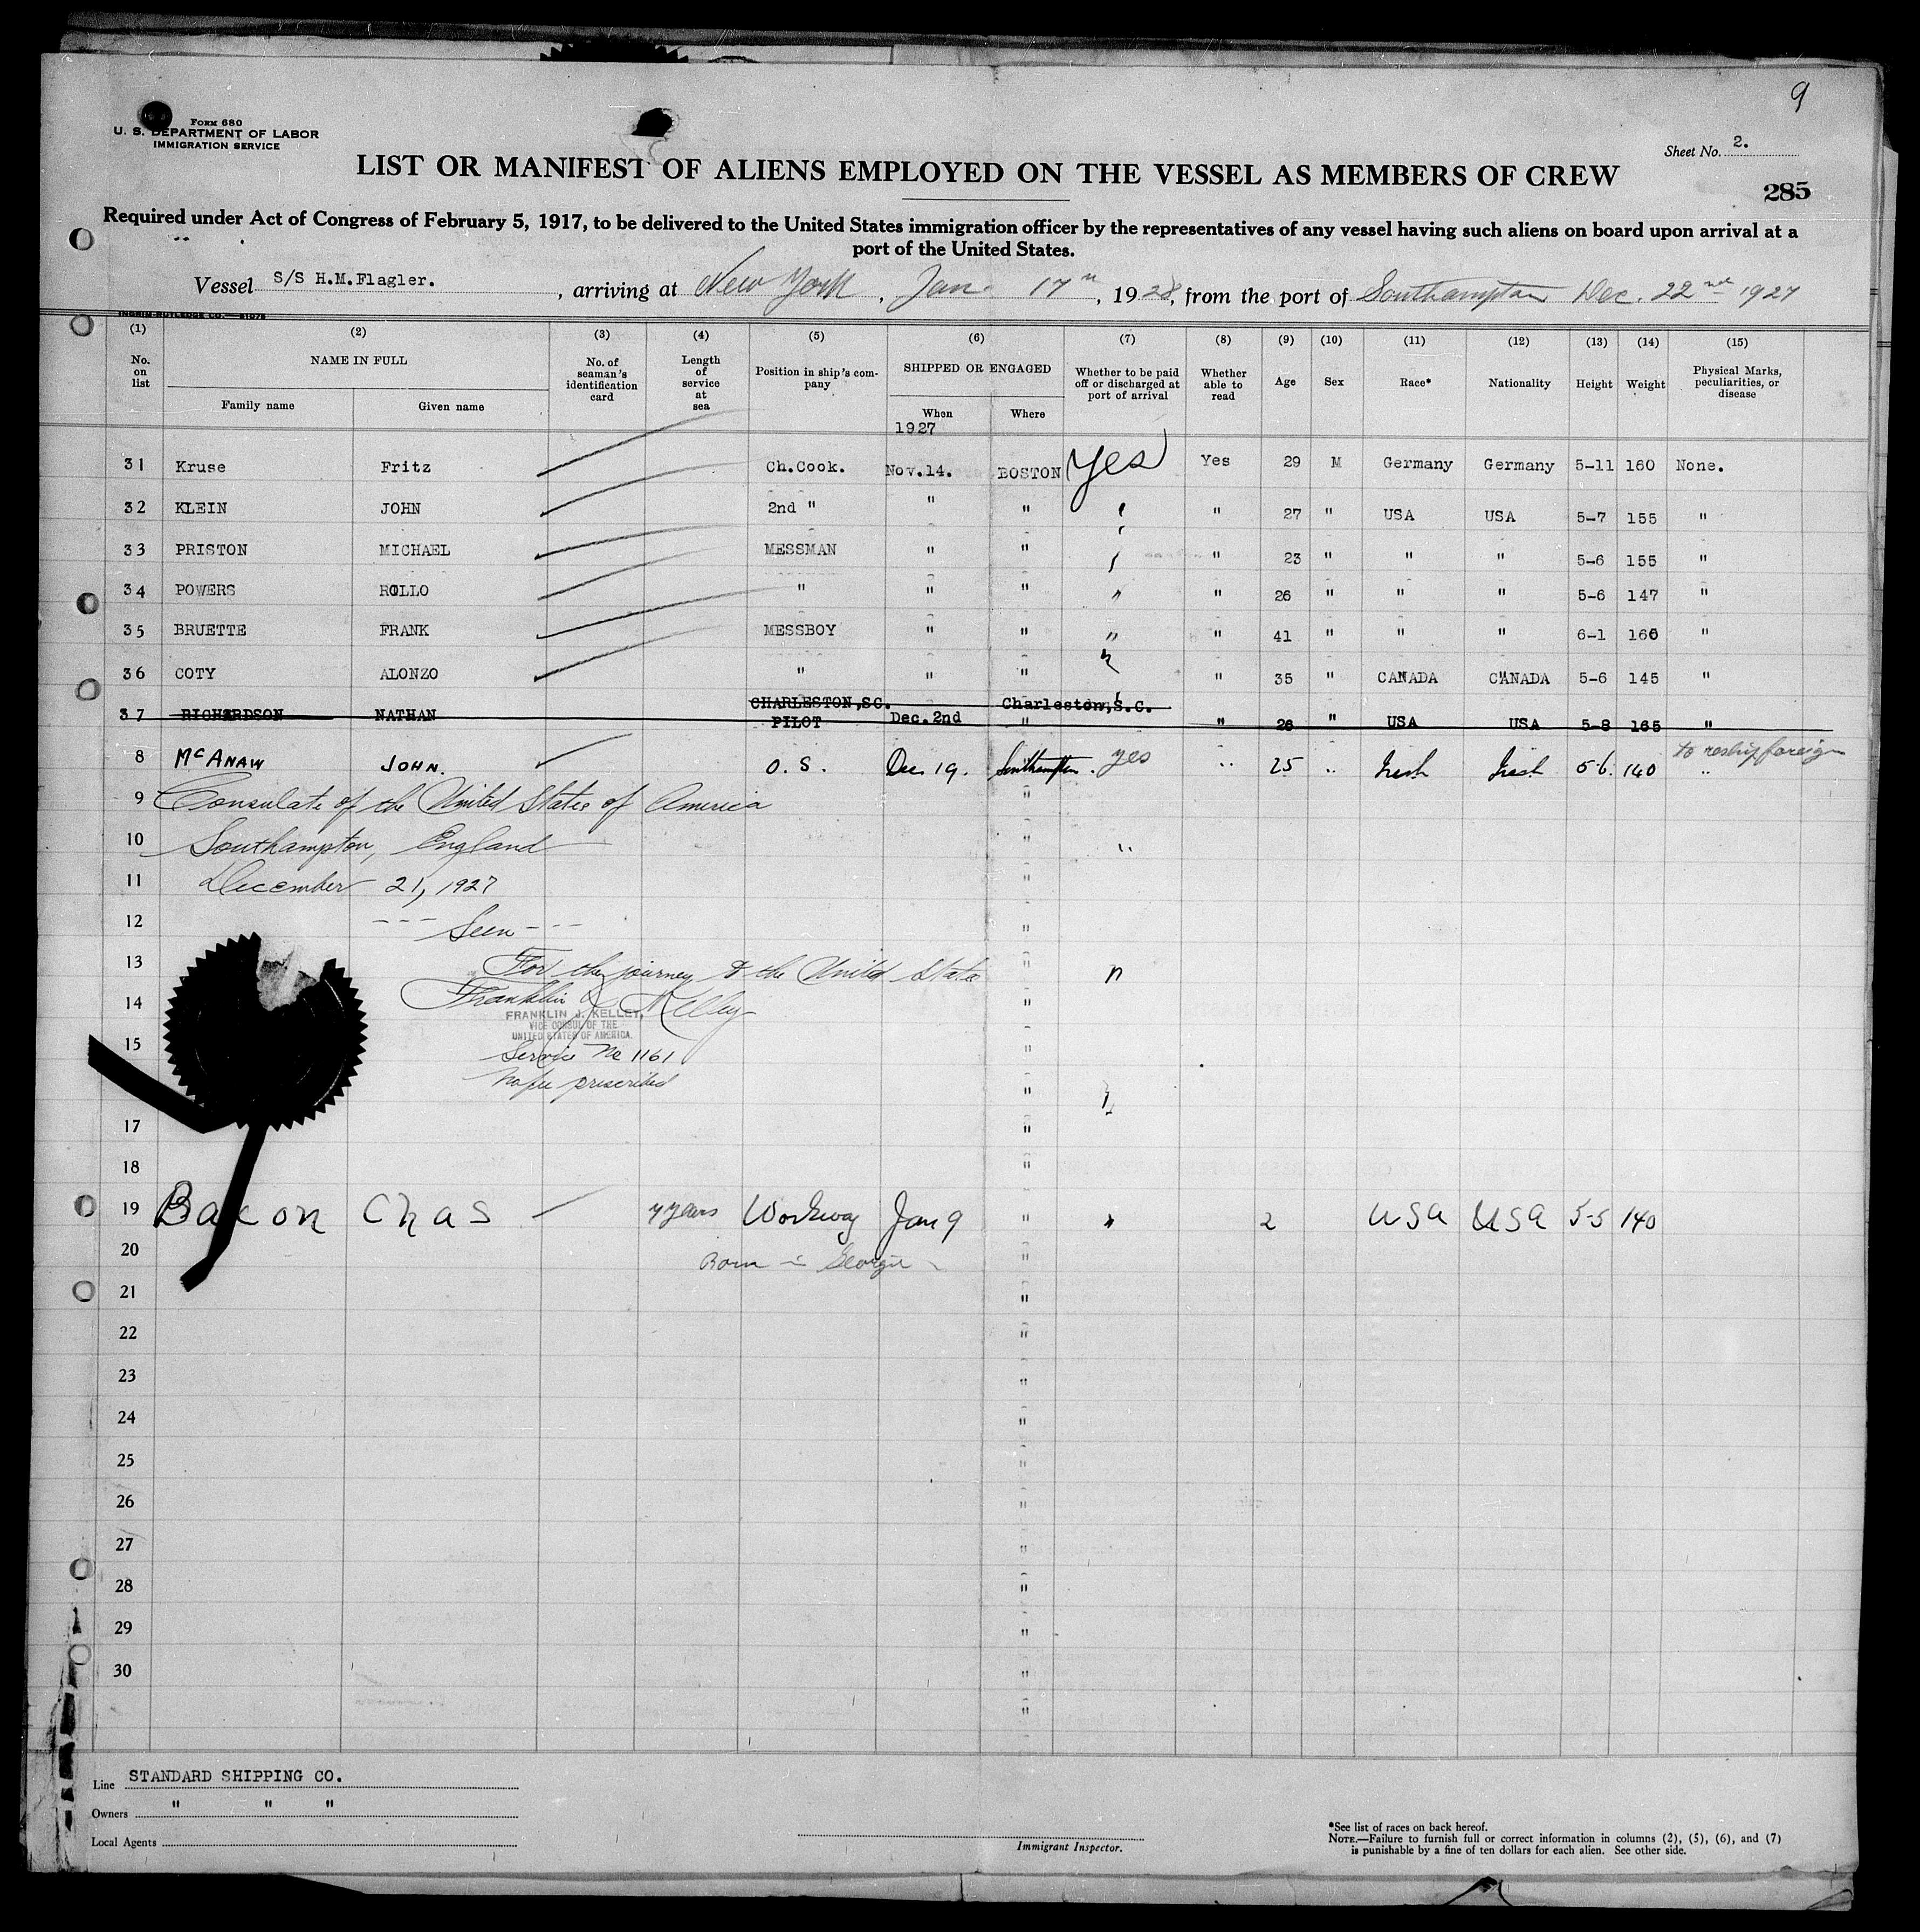 9
FORM 680
U. S. DEPARTMENT OF LABOR
IMMIGRATION SERVICE
Sheet No. 2.
LIST OR MANIFEST OF ALIENS EMPLOYED ON THE VESSEL AS MEMBERS OF CREW
285
Required under Act of Congress of February 5, 1917, to be delivered to the United States immigration officer by the representatives of any vessel having such aliens on board upon arrival at a
port of the United States.
Vessel S/S H.M.Flagler. , arriving at New York , Jan. 17th , 1928, from the port of Southampton Dec. 22nd 1927
(1) (2) (3) (4) (5) (6) (7) (8) (9) (10) (11) (12) (13) (14) (15)
No. on list NAME IN FULL Family name Given name No. of seaman's identification card Length of service at sea Position in ship's company SHIPPED OR ENGAGED When Where Whether to be paid off or discharged at port of arrival Whether able to read Age Sex Race* Nationality Height Weight Physical Marks, peculiarities, or disease
1927
31 Kruse Fritz Ch.Cook. Nov.14. BOSTON Yes Yes 29 M Germany Germany 5-11 160 None.
32 KLEIN JOHN 2nd " " " " " 27 " USA USA 5-7 155 "
33 PRISTON MICHAEL MESSMAN " " " " 23 " " " 5-6 155 "
34 POWERS ROLLO " " " " " 26 " " " 5-6 147 "
35 BRUETTE FRANK MESSBOY " " " " 41 " " " 6-1 160 "
36 COTY ALONZO " " " " " 35 " CANADA CANADA 5-6 145 "
CHARLESTON,SC. Charleston,S.C.
37 RICHARDSON NATHAN PILOT Dec.2nd " " 26 " USA USA 5-8 165 "
to reship foreign
8 McANAW JOHN. O. S. Dec 19. Southampton. yes " 25 " Irish Irish 5-6. 140 "
9 Consulate of the United States of America "
10 Southampton, England " "
11 December 21, 1927 "
12 --- Seen --- "
13 For the journey to the United States " "
14 Franklin J. Kelley "
FRANKLIN J. KELLEY,
VICE CONSUL OF THE
UNITED STATES OF AMERICA.
15 Service No 1161 "
No fee prescribed "
17 "
18 "
19 Bacon Chas 4 years Workway Jan 9 " " 2 USA USA 5-5 140
20 Born in Georgia "
21 "
22 "
23 "
24 "
25 "
26 "
27 "
28 "
29 "
30 "
"
Line STANDARD SHIPPING CO.
Owners " " "
Local Agents
Immigrant Inspector.
*See list of races on back hereof.
NOTE.—Failure to furnish full or correct information in columns (2), (5), (6), and (7)
is punishable by a fine of ten dollars for each alien. See other side.